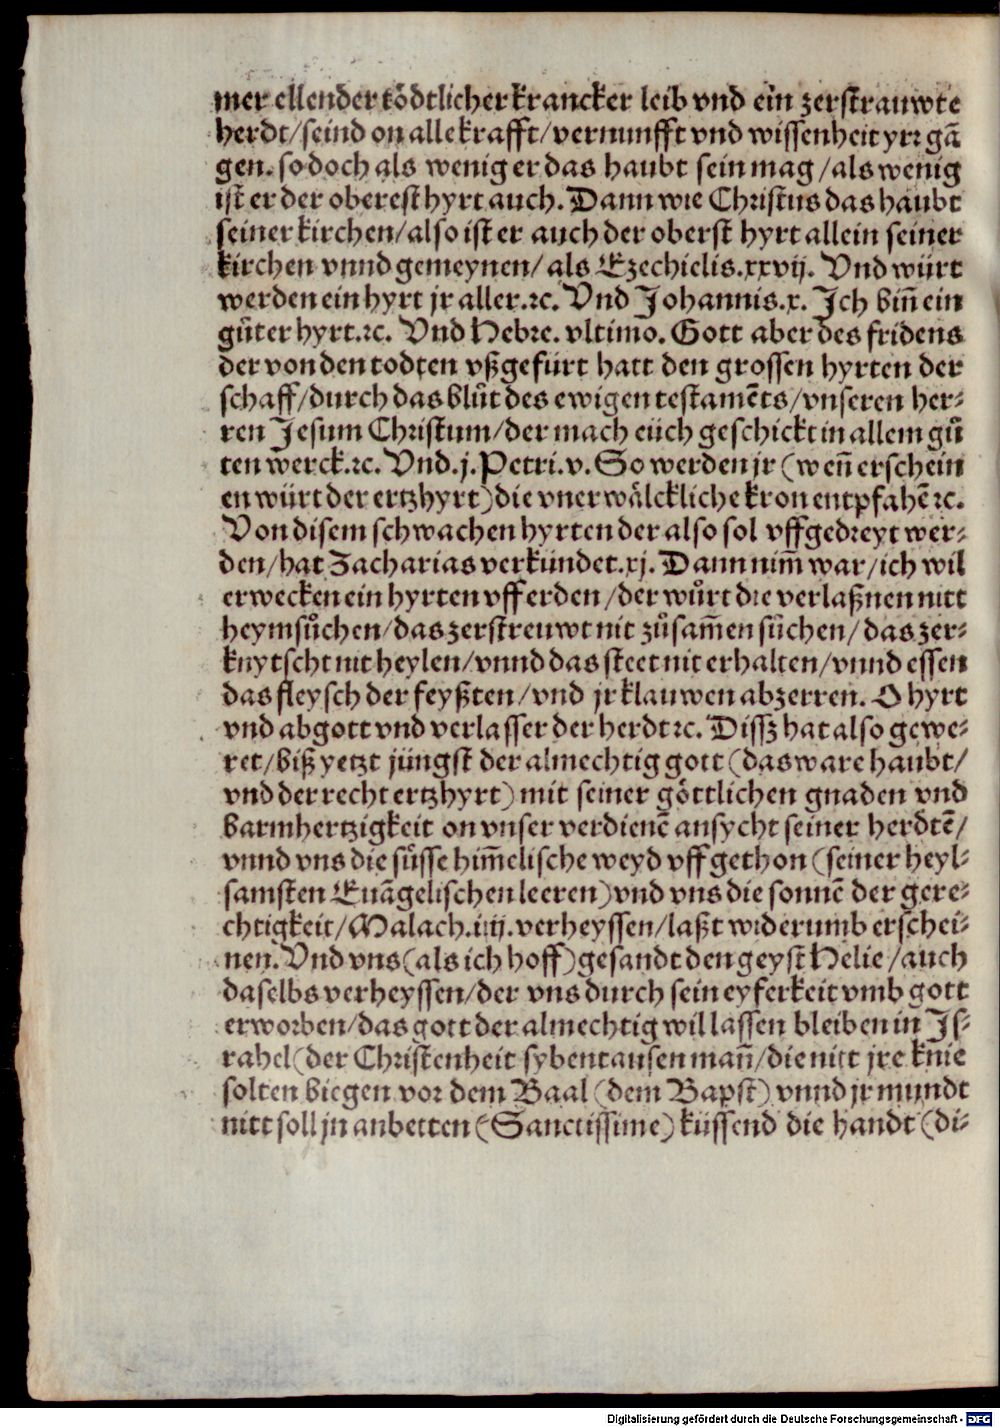 mer ellender tödtlicher krancker leib vnd ein zerstrauwte
herdt/seind on alle krafft/vernunfft vnd wissenheit yrr gā
gen. so doch als wenig er das haubt sein mag/als wenig
ist er der oberest hyrt auch. Dann wie Christus das haubt
seiner kirchen/also ist er auch der oberst hyrt allein seiner
kirchen vnnd gemeynen/ als Ezechielis.xxvij. Vnd würt
werden ein hyrt jr aller.⁊c. Vnd Johannis.x. Jch biñ ein
gůter hyrt.⁊c. Vnd Hebre. vltimo. Gott aber des fridens
der von den todten vßgefürt hatt den grossen hyrten der
schaff/durch das blůt des ewigen testamēts/vnseren her⸗
ren Jesum Christum/der mach eüch geschickt in allem gů
ten werck.⁊c. Vnd.j.Petri.v. So werden jr (weñ erschein
en würt der ertzhyrt) die vnerwälckliche kron entpfahē ⁊c.
Von disem schwachen hyrten der also sol vffgedreyt wer⸗
den/hat Zacharias verkündet.xj. Dann nim̃ war/ich wil
erwecken ein hyrten vff erden/der würt die verlaßnen nitt
heymsůchen/das zerstreuwt nit zůsam̃en sůchen/das zer⸗
knytscht nit heylen/vnnd das steet nit erhalten/vnnd essen
das fleysch der feyßten/vnd jr klauwen abzerren. O hyrt
vnd abgott vnd verlasser der herdt ⁊c. Dissz hat also gewe⸗
ret/biß yetzt jüngst der almechtig gott (das ware haubt/
vnd der recht ertzhyrt) mit seiner göttlichen gnaden vnd
barmhertzigkeit on vnser verdienē ansycht seiner herdtē/
vnnd vns die sůsse him̃elische weyd vffgethon (seiner heyl⸗
samsten Euāgelischen leeren) vnd vns die sonnē der gere⸗
chtigkeit/Malach.iiij.verheyssen/laßt widerumb erschei⸗
nen. Vnd vns (als ich hoff) gesandt den geyst Helie/auch
daselbs verheyssen/der vns durch sein eyferkeit vmb gott
erworben/das gott der almechtig wil lassen bleiben in Js⸗
rahel (der Christenheit sybentausen mañ/die nitt jre knie
solten biegen vor dem Baal (dem Bapst) vnnd jr mundt
nitt soll jn anbetten (Sanctissime) küssend die handt (di⸗
Digitalisierung gefördert durch die Deutsche Forschungsgemeinschaft - DFG